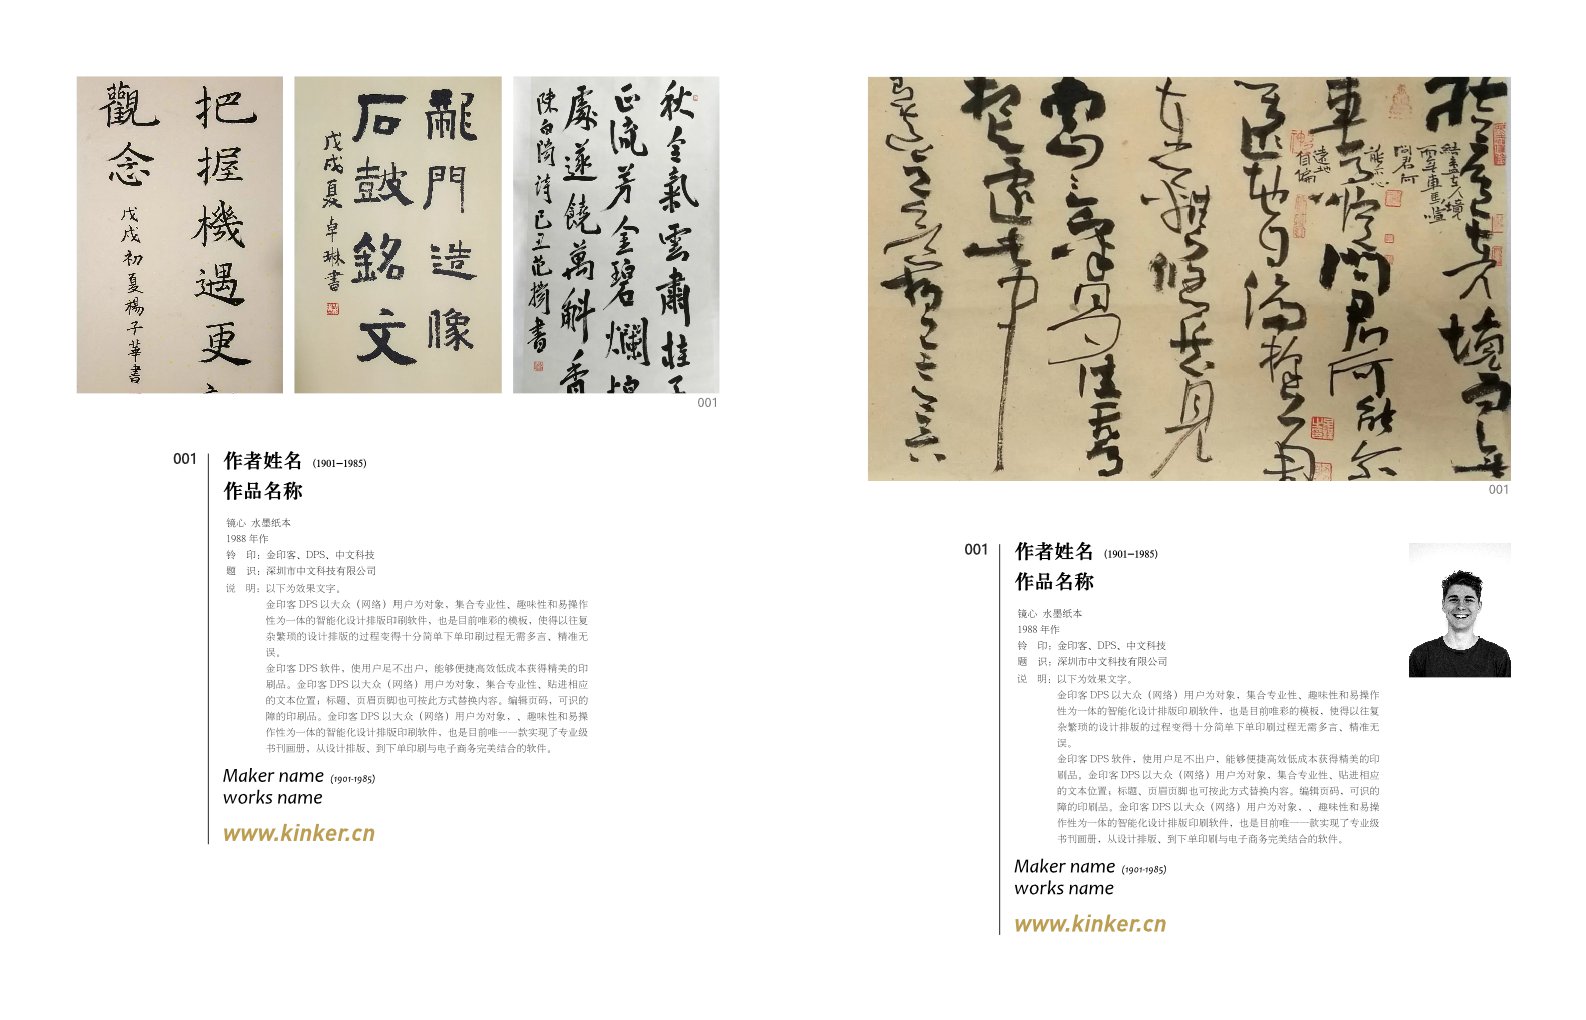 把握機遇更
觀念
戊戌初夏楊子華書
門造像
石鼓銘文
戊戌夏卓琳書
秋全氣雲肅桂子
正流芳金碧爛
處遂饒萬斛香
陳白陽詩己丑范書
001
001 作者姓名 (1901–1985)
作品名称
镜心 水墨纸本
1988 年作
铃 印：金印客、DPS、中文科技
题 识：深圳市中文科技有限公司
说 明：以下为效果文字。
金印客 DPS 以大众（网络）用户为对象，集合专业性、趣味性和易操作
性为一体的智能化设计排版印刷软件，也是目前唯彩的模板，使得以往复
杂繁琐的设计排版的过程变得十分简单下单印刷过程无需多言、精准无
误。
金印客 DPS 软件，使用户足不出户，能够便捷高效低成本获得精美的印
刷品。金印客 DPS 以大众（网络）用户为对象，集合专业性、贴进相应
的文本位置；标题、页眉页脚也可按此方式替换内容。编辑页码，可识的
障的印刷品。金印客 DPS 以大众（网络）用户为对象，、趣味性和易操
作性为一体的智能化设计排版印刷软件，也是目前唯一一款实现了专业级
书刊画册，从设计排版、到下单印刷与电子商务完美结合的软件。
Maker name (1901-1985)
works name
www.kinker.cn
在人境而無
車馬喧問君何能尔
遠地自偏
001
001 作者姓名 (1901–1985)
作品名称
镜心 水墨纸本
1988 年作
铃 印：金印客、DPS、中文科技
题 识：深圳市中文科技有限公司
说 明：以下为效果文字。
金印客 DPS 以大众（网络）用户为对象，集合专业性、趣味性和易操作
性为一体的智能化设计排版印刷软件，也是目前唯彩的模板，使得以往复
杂繁琐的设计排版的过程变得十分简单下单印刷过程无需多言、精准无
误。
金印客 DPS 软件，使用户足不出户，能够便捷高效低成本获得精美的印
刷品。金印客 DPS 以大众（网络）用户为对象，集合专业性、贴进相应
的文本位置；标题、页眉页脚也可按此方式替换内容。编辑页码，可识的
障的印刷品。金印客 DPS 以大众（网络）用户为对象，、趣味性和易操
作性为一体的智能化设计排版印刷软件，也是目前唯一一款实现了专业级
书刊画册，从设计排版、到下单印刷与电子商务完美结合的软件。
Maker name (1901-1985)
works name
www.kinker.cn